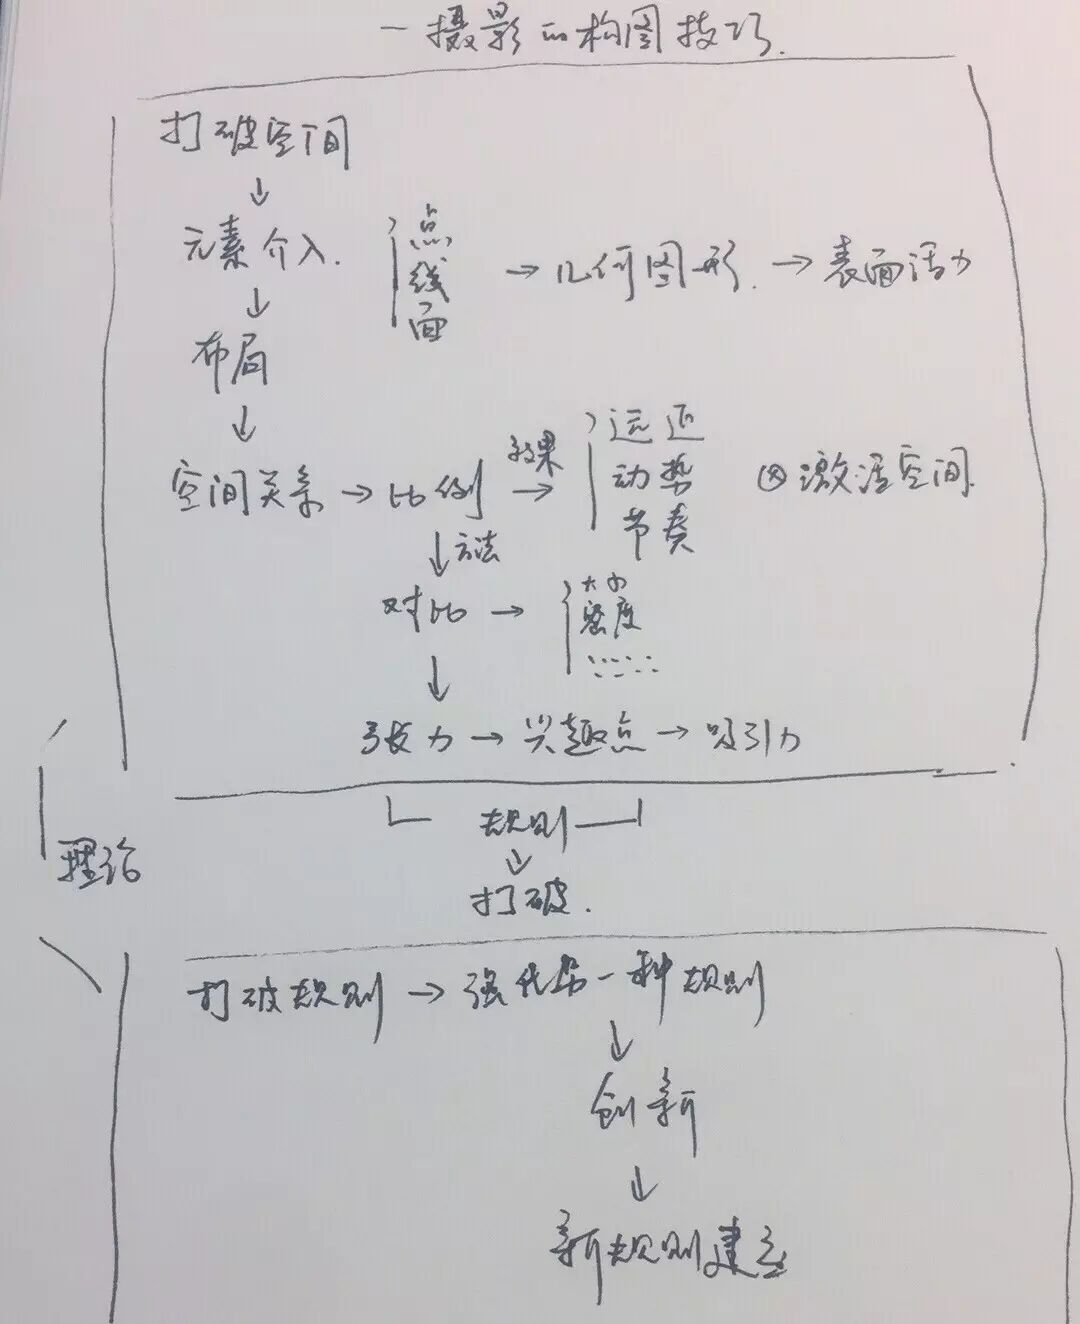 一摄影的构图技巧.
打破空间
↓
元素介入. 点 线 面 → 几何图形. → 表面活力
↓
布局
↓
空间关系 → 比例 效果→ 远近 动势 节奏 ⊗激活空间.
↓方法
对比 → 大小 密度 ……
↓
张力 → 兴趣点 → 吸引力
规则
↓
理论
打破.
打破规则 → 强化另一种规则
↓
创新
↓
新规则建立